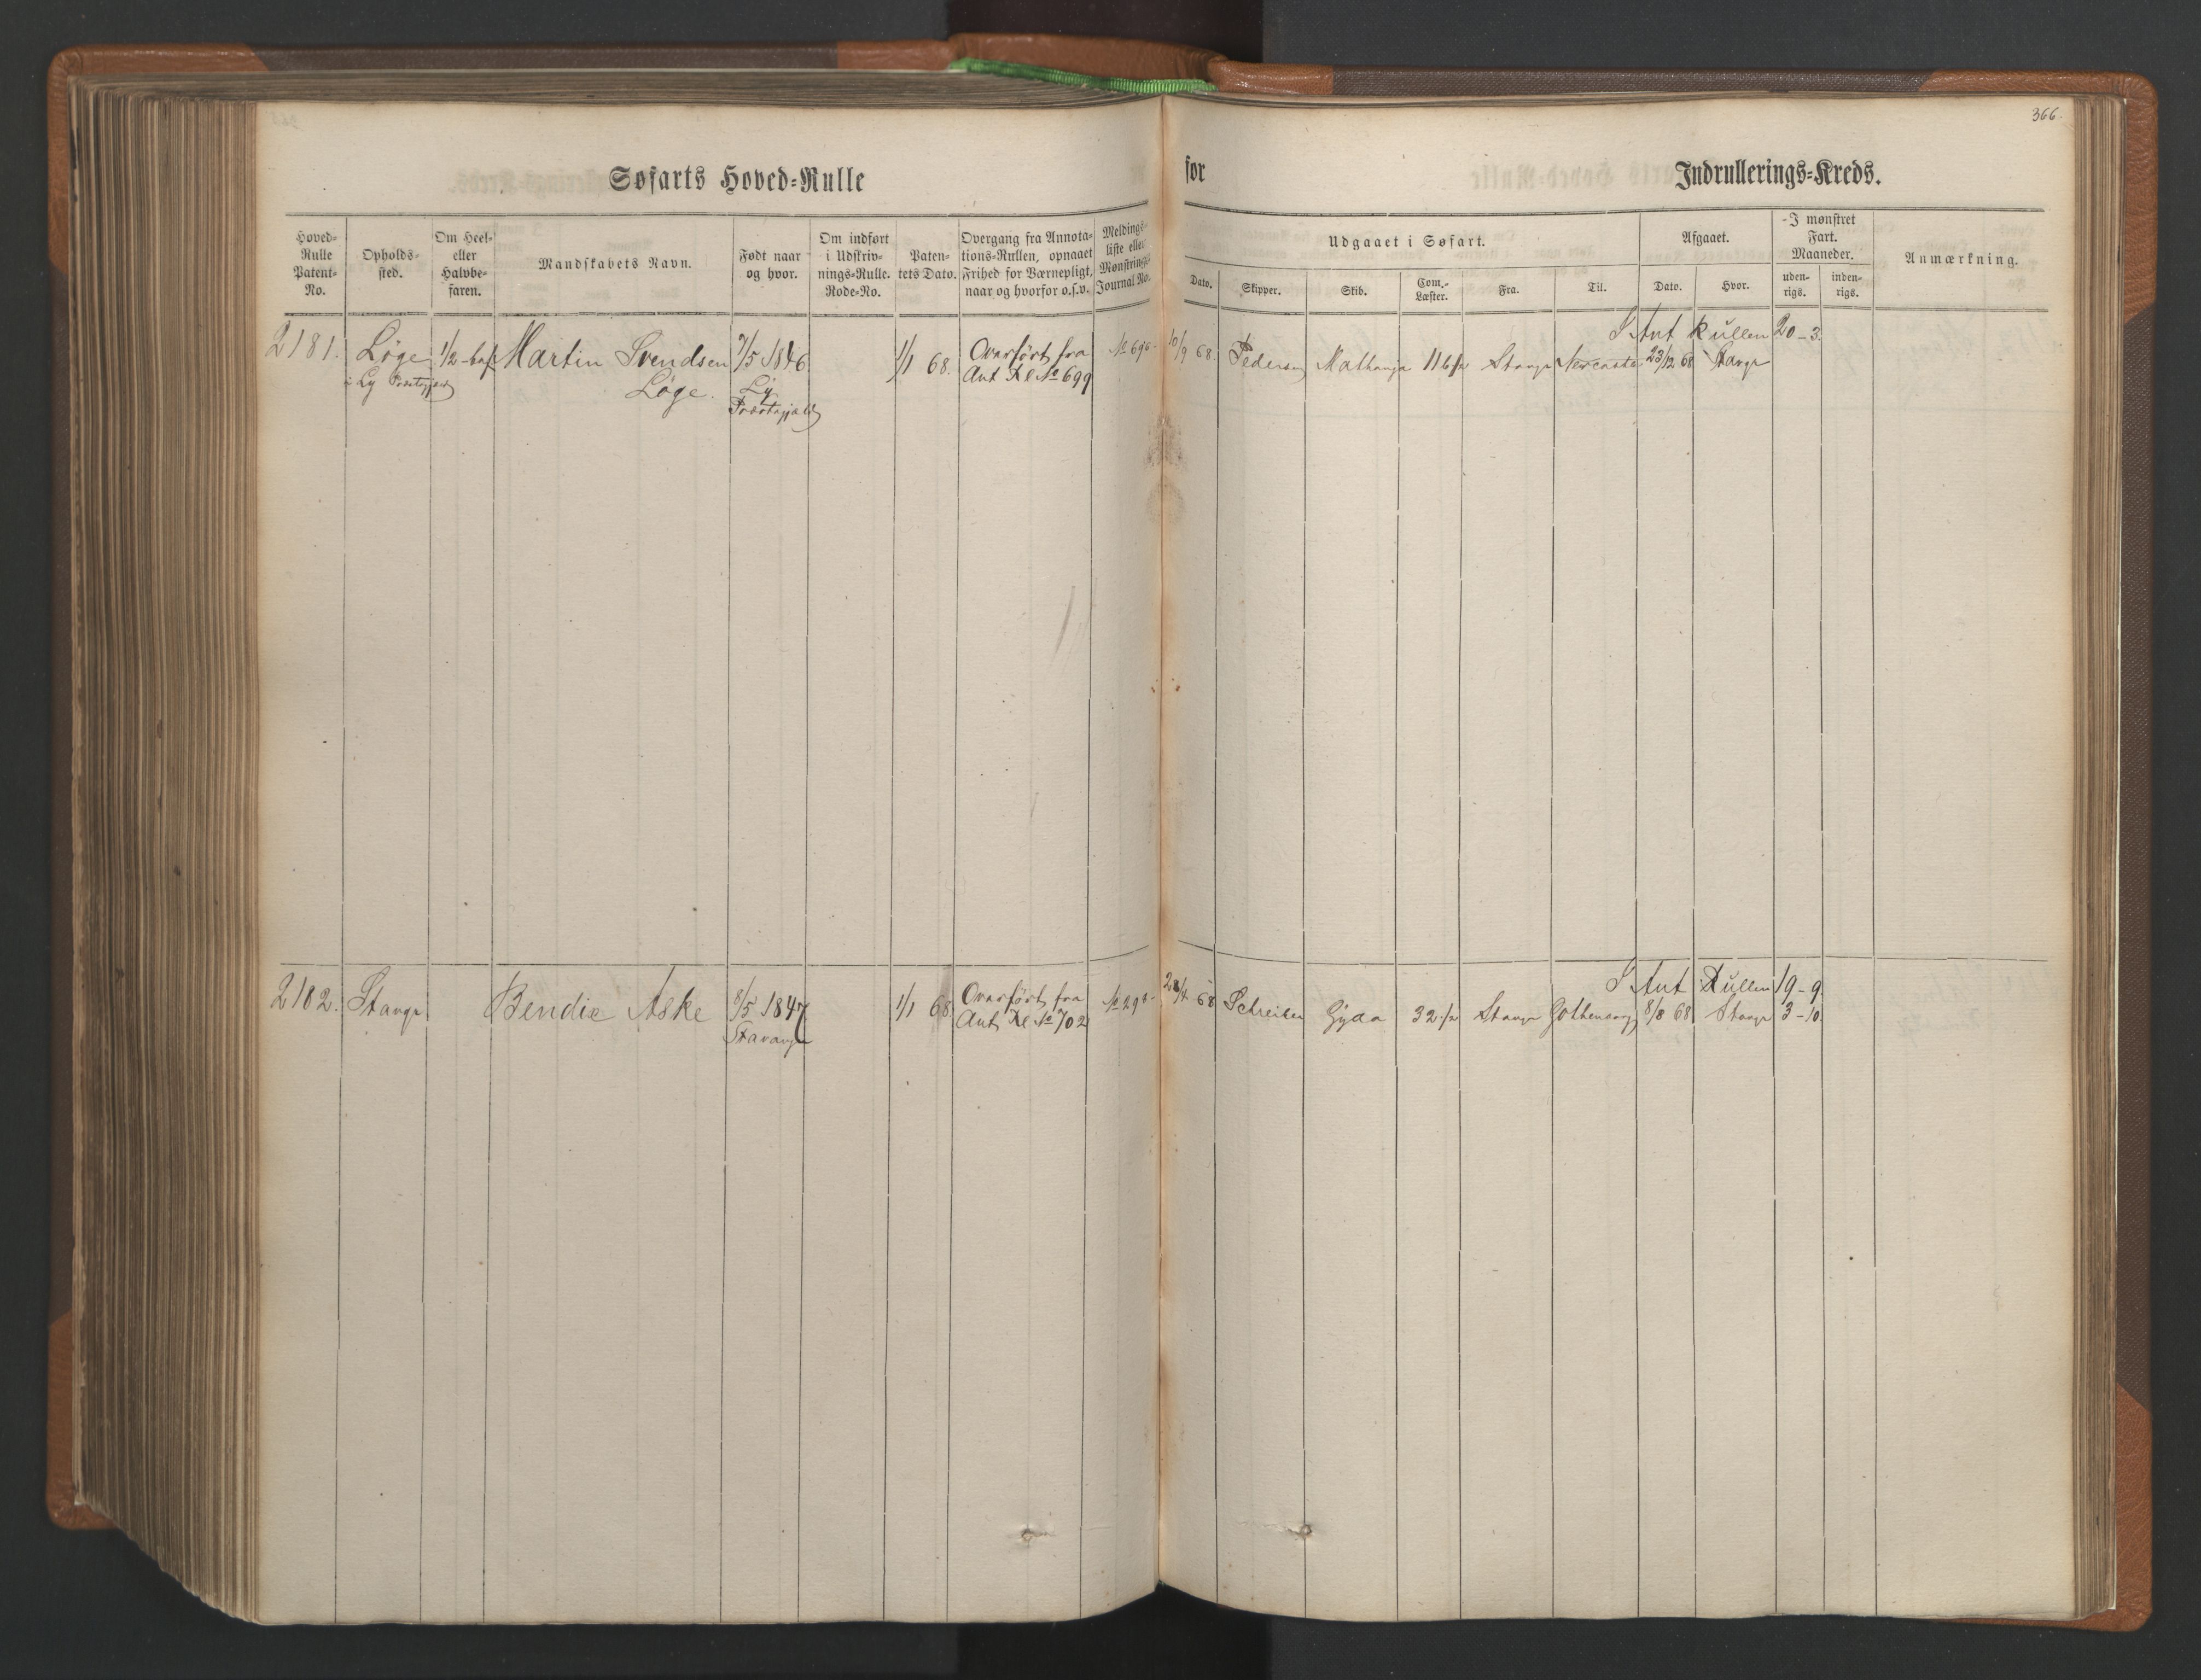 366
Søfarts Hoved-Rulle for Indrullerings-Kreds.
Hoved-Rulle Patent-No.
Opholds-sted.
Om Heel- eller Halvbe-faren.
Mandskabets Navn.
Født naar og hvor.
Om indført i Udskriv-nings-Rulle. Rode-No.
Paten-tets Dato.
Overgang fra Annota-tions-Rullen, opnaaet Frihed for Værnepligt, naar og hvorfor o.s.v.
Meldings-liste eller Mønstrings-Journal No.
Udgaaet i Søfart.
Dato.
Skipper.
Skib.
Com.-Læster.
Fra.
Til.
Afgaaet.
Dato.
Hvor.
I mønstret Fart. Maaneder.
uden-rigs.
inden-rigs.
Anmærkning.
I Ant Rullen 20-3.
2181. Løge 1/2-bef Martin Svendsen 7/5 1846 1/1 68. Overført fra 10/9 68. Pedersen 116 Stavgr 23/12 68 Stavgr
i Ly Præstegjeld Løge. Ly Ant Rl № 699
Præstegjeld
I Ant Rullen 19-9
2182. Stavgr Bendix Aske 8/5 1847 1/1 68 Overført fra 68 Schreiber Gyda 32 Stavgr Gothenborg 8/8 68 Stavgr 3-10.
Stavanger Ant Rl № 702